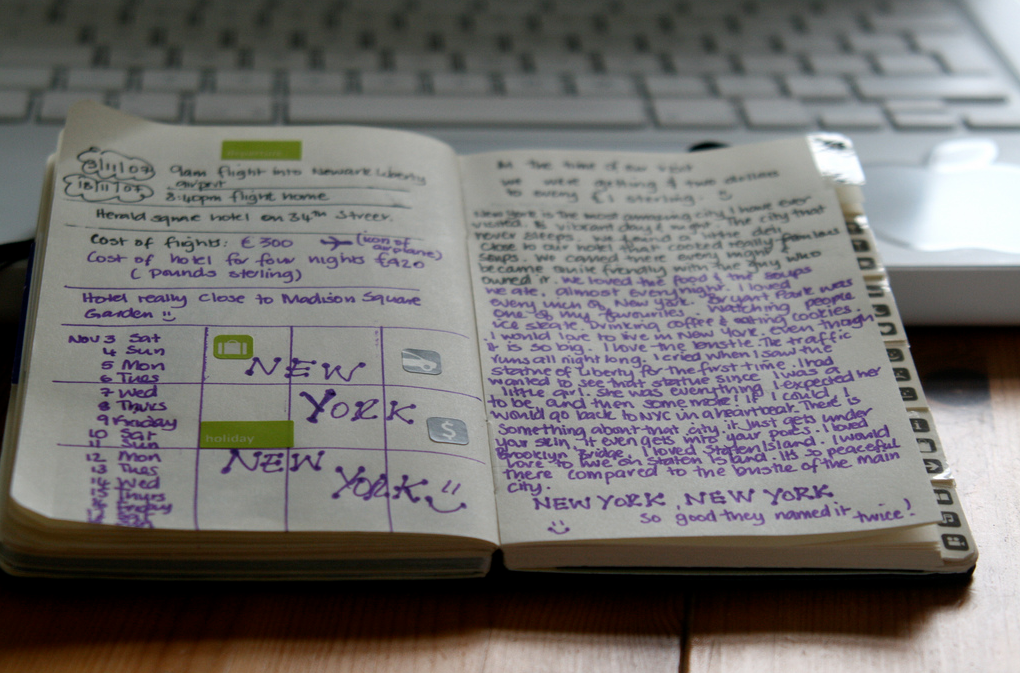 3/11/07
18/11/07
9am flight into Newark Liberty
airport
8:40pm flight home
Herald square hotel on 34th Street.
Cost of flights: £300
(icon of
airplane)
Cost of hotel for four nights £420
(pounds sterling)
Hotel really close to Madison Square
Garden
Nov 3 Sat
4 Sun
5 Mon
6 Tues
7 Wed
8 Thurs
9 Friday
10 Sat
11 Sun
12 Mon
13 Tues
14 Wed
Thurs
Friday
NEW
YORK
$
holiday
NEW
YORK
At the time of our visit
we were getting $ two dollars
to every £1 sterling.
New York is the most amazing city I have ever
visited. Its vibrant day & night. The city that
never sleeps. We found a little deli
close to our hotel that cooked really fabulous
soups. We called there every night &
became quite friendly with the guy who
owned it. We loved the food & the soups
we ate, almost everynight. I loved
every inch of New York. Bryant Park was
one of my favourites. Watching people
ice skate. Drinking coffee & eating cookies.
I would love to live in New York. even though
it is so long. I love the bustle. The traffic
runs all night long. I cried when I saw the
statue of Liberty for the first time. I had
wanted to see that statue since I was a
little girl. She was everything I expected her
to be and then some more! If I could I
would go back to NYC in a heartbeat. There is
something about that city. it just gets under
your skin. It even gets into your pores. I loved
Brooklyn Bridge. I loved Staten Island. I would
love to live on Staten Island. Its so peaceful
there compared to the bustle of the main
city.
NEW YORK, NEW YORK
so good they named it twice!